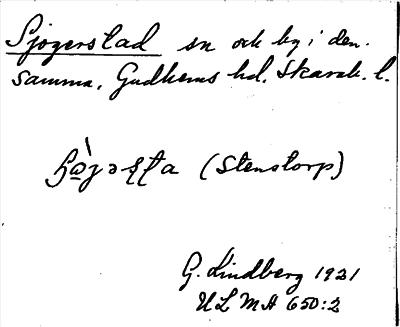 Sjogerstad sn och by i den-
samma, Gudhems hd. Skarab. l.
(Stenstorp)
G. Lindberg 1921
ULMA 650:2